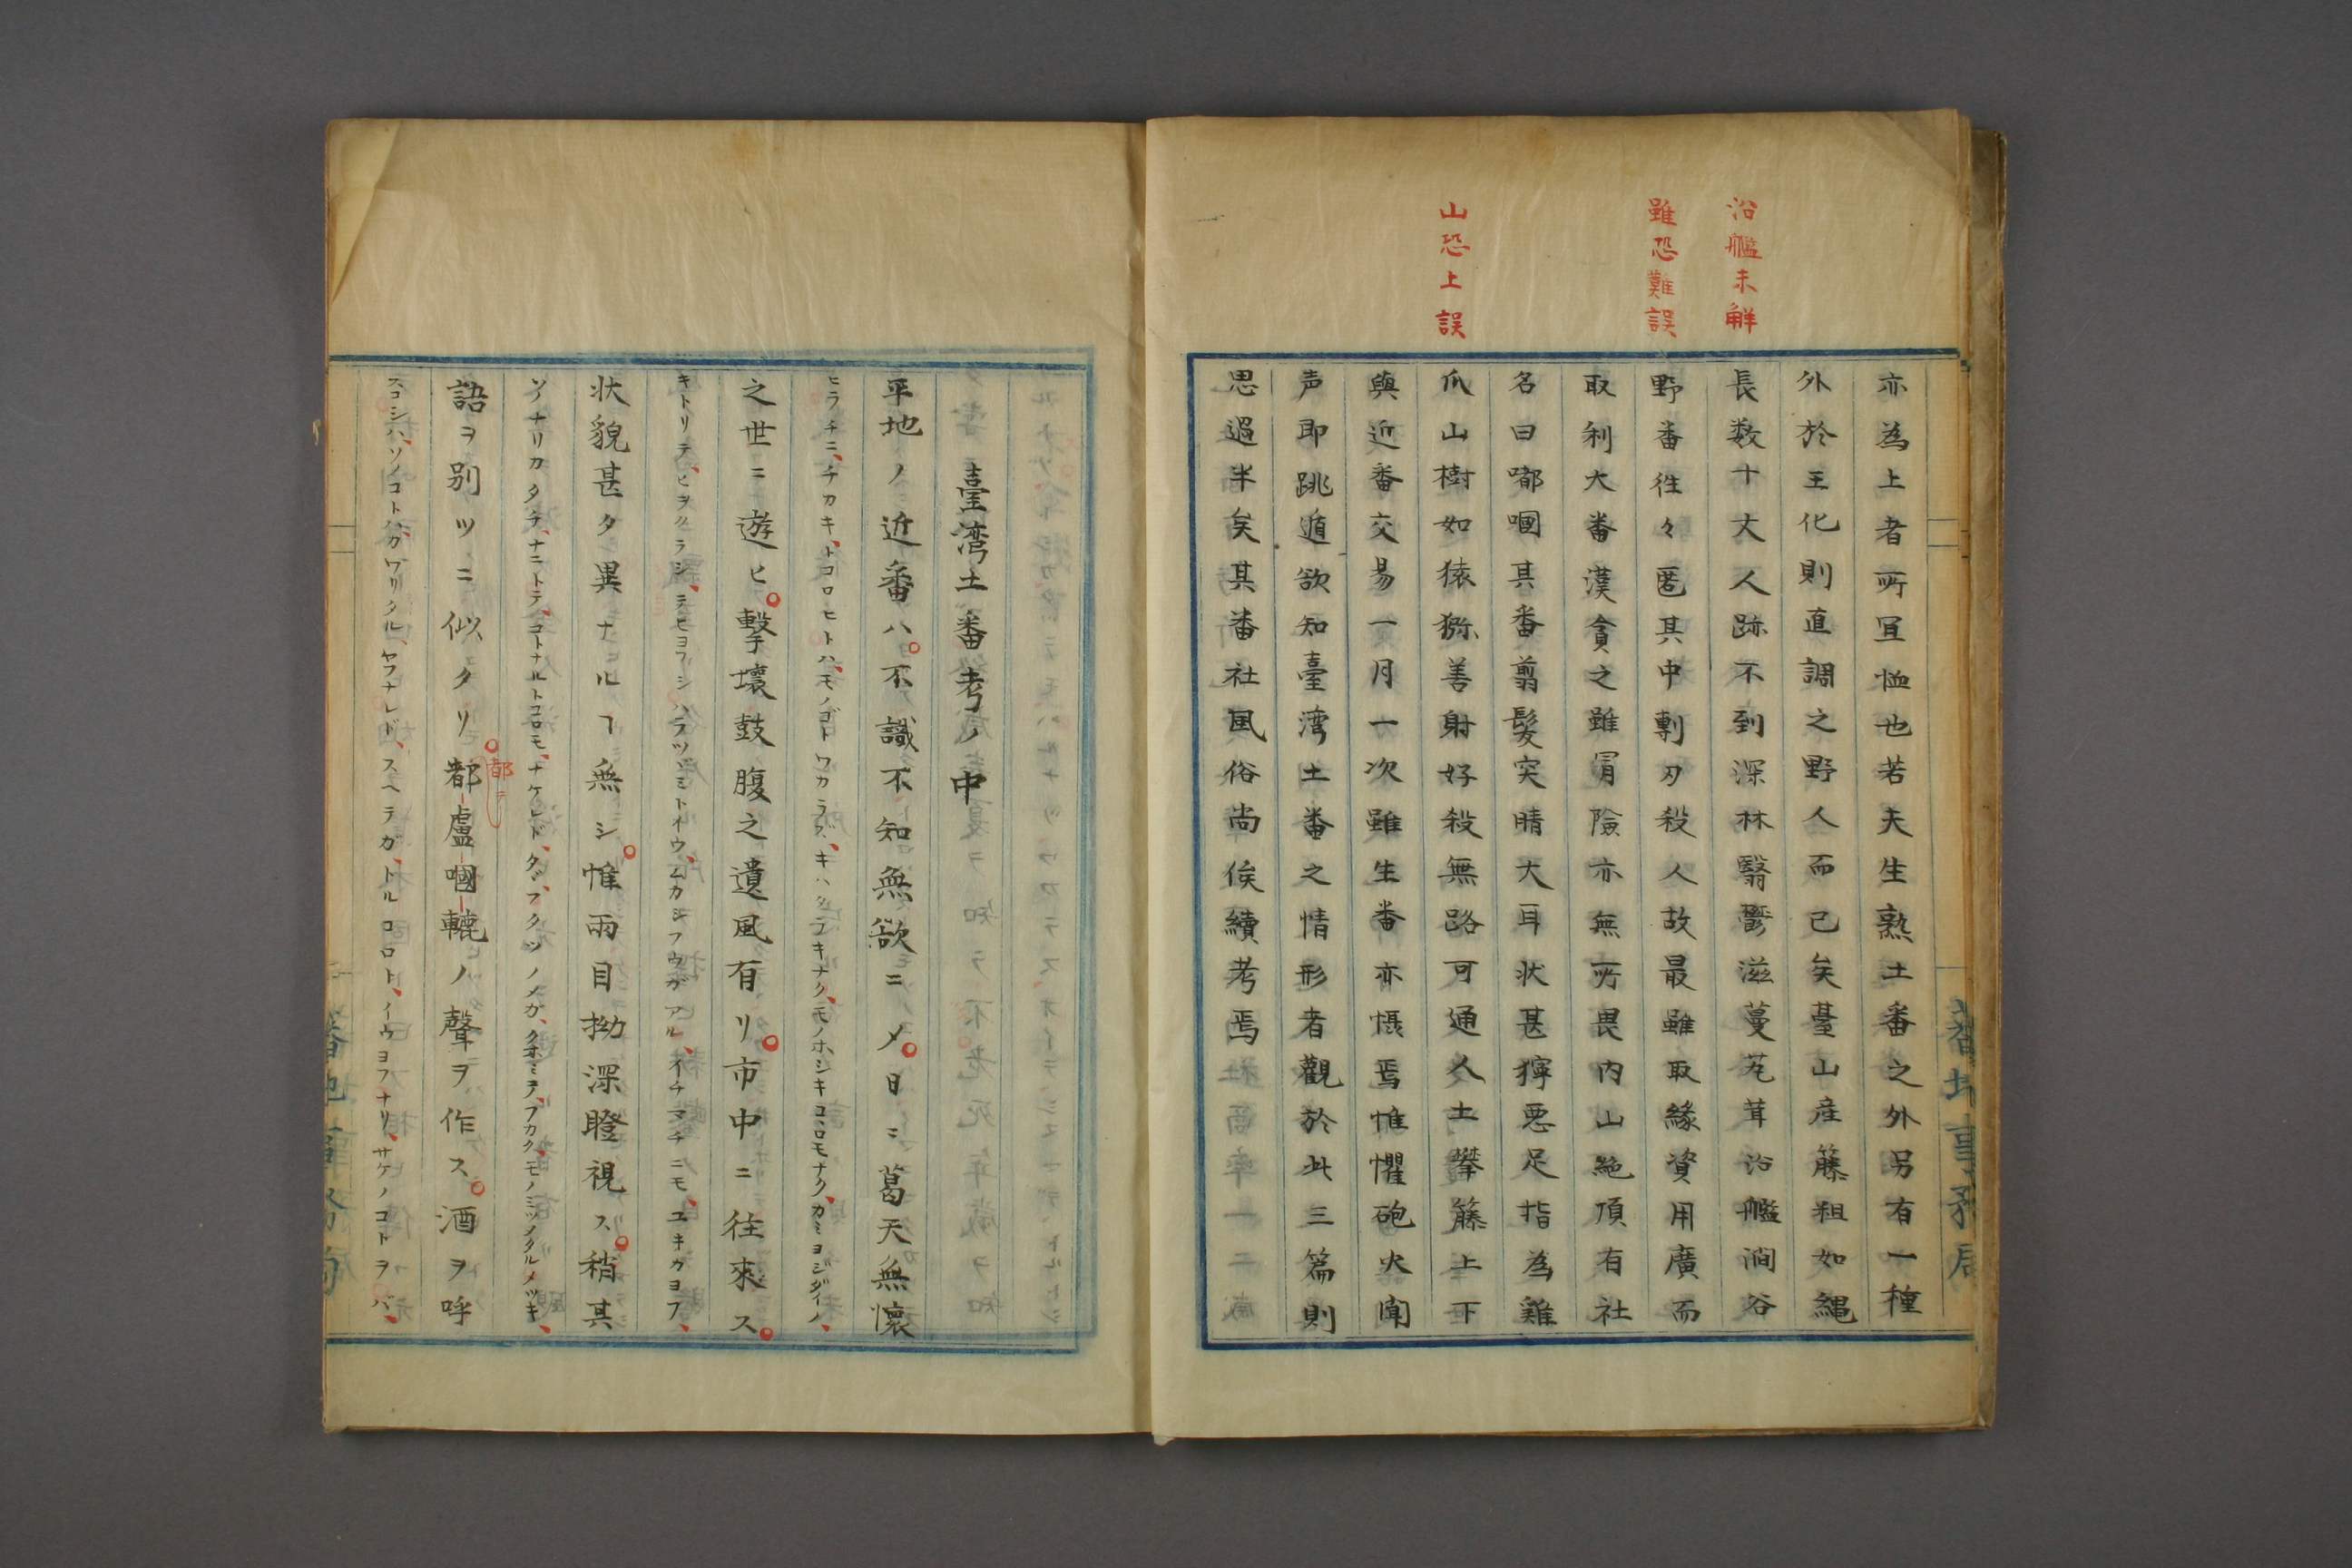 沿艦未解
雖恐難誤
山恐上誤
亦為上者所宜恤也若夫生熟土番之外另有一種
外於王化則直調之野人而已矣臺山産藤粗如縄
長数十丈人跡不到深林翳鬱滋蔓芃茸沿艦澗谷
野番徃々匿其中剸刃殺人故最雖取緣資用廣而
取利大番漢貪之雖冐險亦無所畏内山絶頂有社
名曰嘟嘓其番剪髮突睛大耳状甚獰悪足指為雞
爪山樹如猿猕善射好殺無路可通人土攀籐上下
與近番交易一月一次雖生番亦懾焉惟懼砲火聞
声即跳遁欲知臺湾土番之情形者觀於此三篇則
思過半矣其番社風俗尚俟續考焉
臺湾土番考ノ中
平地ノ近番ハ不識不知無慾ニメ日ニ葛天無懷
ヒラチニ、チカキ、トコロヒトハ、モノゴトワカラズ、キハクデキナク、モノホシキコヽロモナク、カミヨジダイノ、
之世ニ遊ヒ擊壤鼓腹之遺風有リ市中ニ往來ス
キトリテ、ヒヲクラシ、
状貌甚タ異ナルヿ無シ惟兩目拗深瞪視ス稍其
ソノナリカタチ、ナニトテ、コトナルトコロモ、ナケレド、タヾ、フタツノメガ、クボミテ、フカク、モノミツメタルメツキ、
語ヲ別ツニ似タリ都盧嘓轆ノ聲ヲ作ス酒ヲ呼
都
スコシハ、ソノコトバカワリタル、ヤフナレド、スヘテガ、トルコロト、イウヨフナリ、サケノコトヲバ、